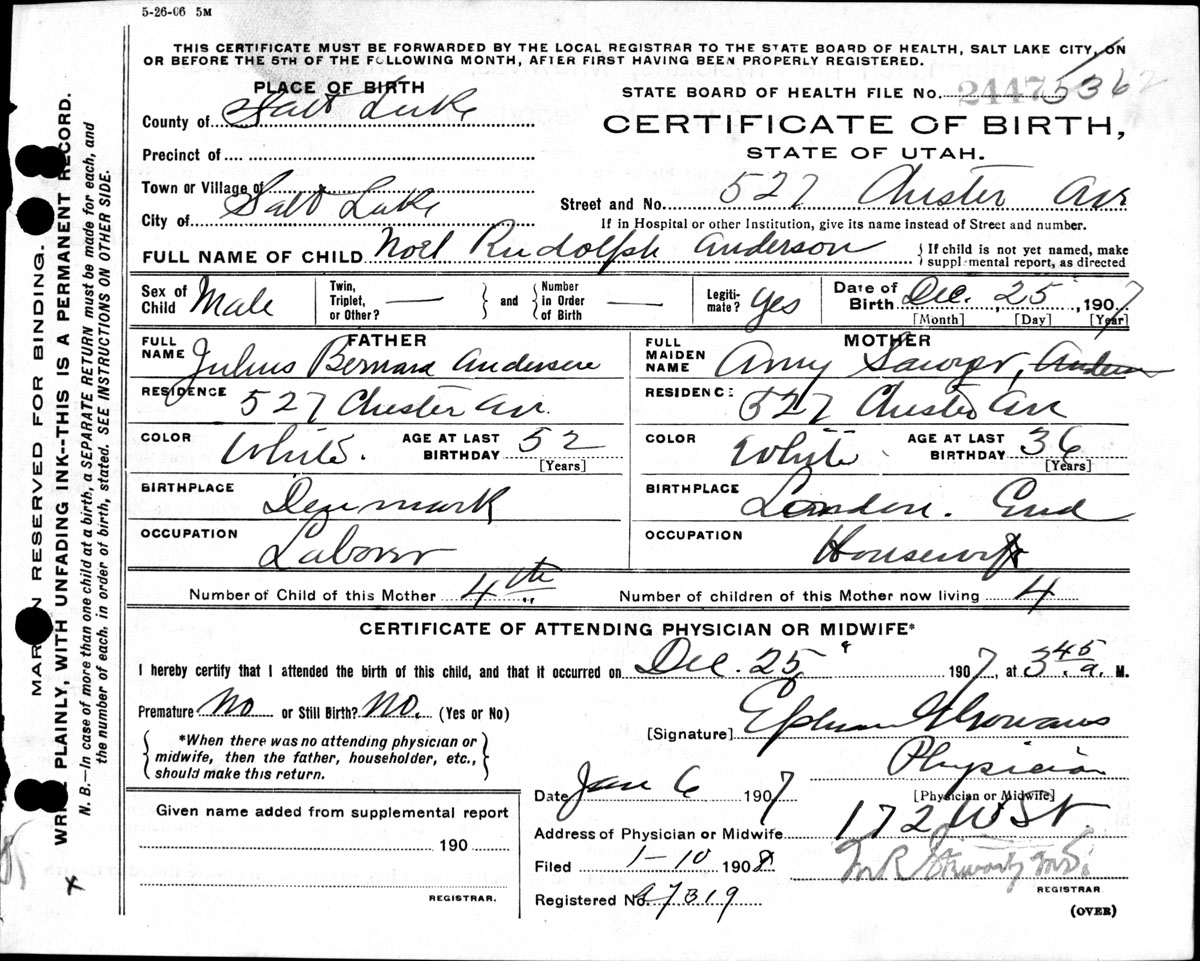 5-26-06 5M
THIS CERTIFICATE MUST BE FORWARDED BY THE LOCAL REGISTRAR TO THE STATE BOARD OF HEALTH, SALT LAKE CITY, ON
OR BEFORE THE 5TH OF THE FOLLOWING MONTH, AFTER FIRST HAVING BEEN PROPERLY REGISTERED.
PLACE OF BIRTH
STATE BOARD OF HEALTH FILE No. 2447 5362
County of Salt Lake
CERTIFICATE OF BIRTH,
STATE OF UTAH.
Precinct of
Town or Village of
Street and No. 527 Chester Av
City of Salt Lake
If in Hospital or other Institution, give its name instead of Street and number.
FULL NAME OF CHILD Noel Rudolph Anderson
If child is not yet named, make supplemental report, as directed
Sex of Child Male Twin, Triplet, or Other? — and Number in Order of Birth — Legitimate? Yes Date of Birth Dec. 25, 1907
[Month] [Day] [Year]
FATHER
FULL NAME Julius Bernard Andersen
RESIDENCE 527 Chester Av.
COLOR White. AGE AT LAST BIRTHDAY 52
[Years]
BIRTHPLACE Denmark
OCCUPATION Laborer
MOTHER
FULL MAIDEN NAME Amy Sawyer,
RESIDENCE 527 Chester Av
COLOR White AGE AT LAST BIRTHDAY 36
[Years]
BIRTHPLACE London. End
OCCUPATION Housewife
Number of Child of this Mother 4th Number of children of this Mother now living 4
CERTIFICATE OF ATTENDING PHYSICIAN OR MIDWIFE*
I hereby certify that I attended the birth of this child, and that it occurred on Dec. 25 1907, at 3 45 a. M.
Premature No or Still Birth? No. (Yes or No)
[Signature] Gowans
*When there was no attending physician or
midwife, then the father, householder, etc.,
should make this return.
Physician
[Physician or Midwife]
Date Jan 6 1907
Given name added from supplemental report
190
REGISTRAR.
Address of Physician or Midwife 172 W St.
Filed 1-10 1908
REGISTRAR
Registered No. 7319
(OVER)
MARGIN RESERVED FOR BINDING.
WRITE PLAINLY, WITH UNFADING INK--THIS IS A PERMANENT RECORD.
N. B.—In case of more than one child at a birth, a SEPARATE RETURN must be made for each, and
the number of each, in order of birth, stated. SEE INSTRUCTIONS ON OTHER SIDE.